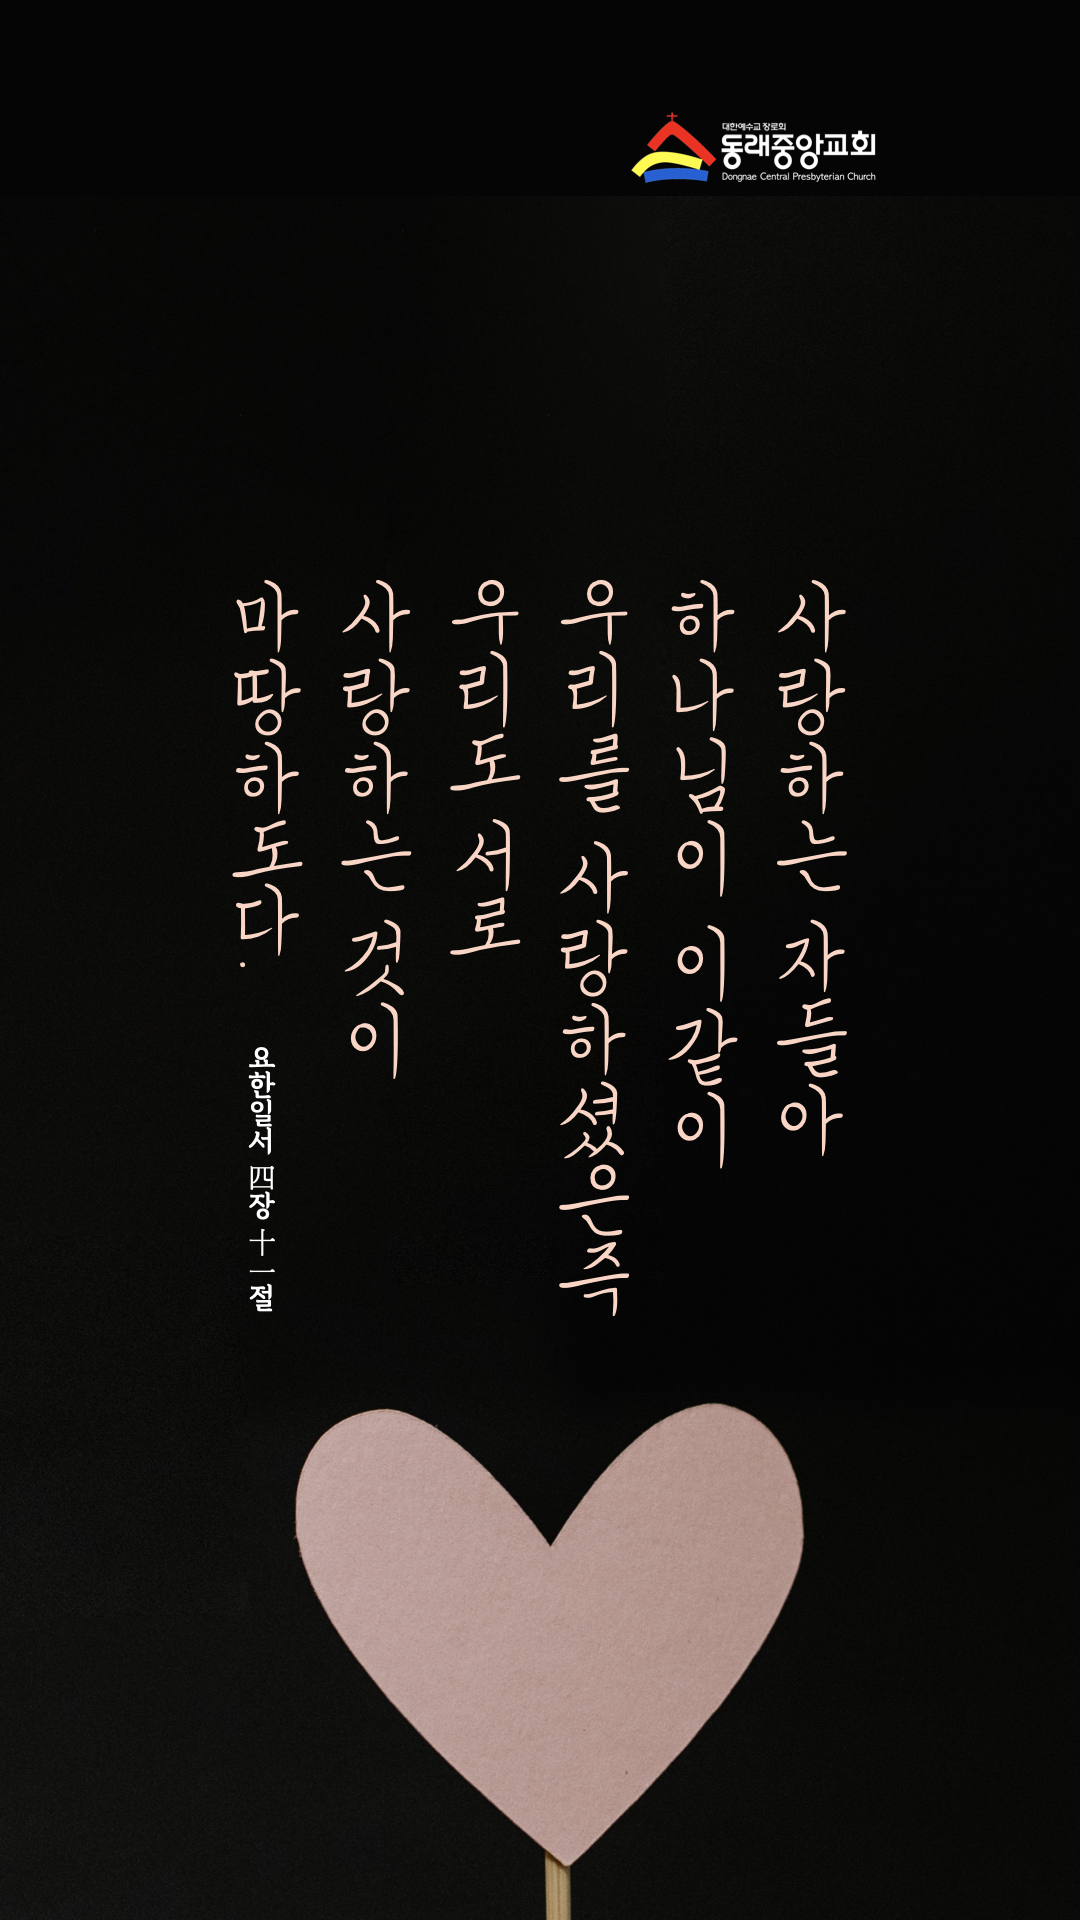 대한예수교 장로회
동래중앙교회
Dongnae Central Presbyterian Church
사랑하는 자들아
하나님이 이같이
우리를 사랑하셨은즉
우리도 서로
사랑하는 것이
마땅하도다.
요한일서 四장 十一절